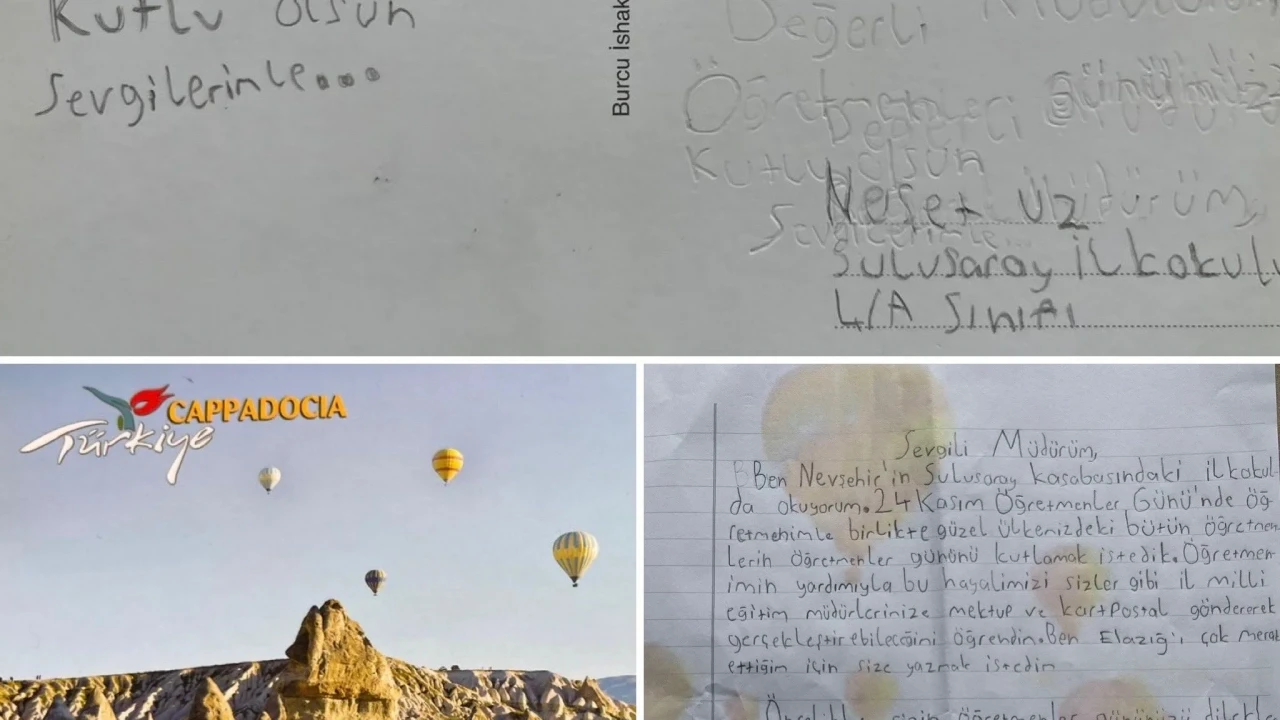 Kutlu olsun
Sevgilerinle...
Burcu İshak
Değerli
Öğretmenleri Gününüz
Kutlu olsun
Neşet Üz
Sulusaray İlkokulu
4/A Sınıfı
CAPPADOCIA
Türkiye
Sevgili Müdürüm,
Ben Nevşehir'in Sulusaray kasabasındaki ilkokul-
da okuyorum. 24 Kasım Öğretmenler Günü'nde öğ-
retmenimle birlikte güzel ülkemizdeki bütün öğretmen
lerin öğretmenler gününü kutlamak istedik. Öğretmen-
imin yardımıyla bu hayalimizi sizler gibi il milli
eğitim müdürlerinize mektup ve kartpostal göndererek
gerçekleştirebileceğini öğrendim. Ben Elazığ'ı çok merak
ettiğim için size yazmak istedim